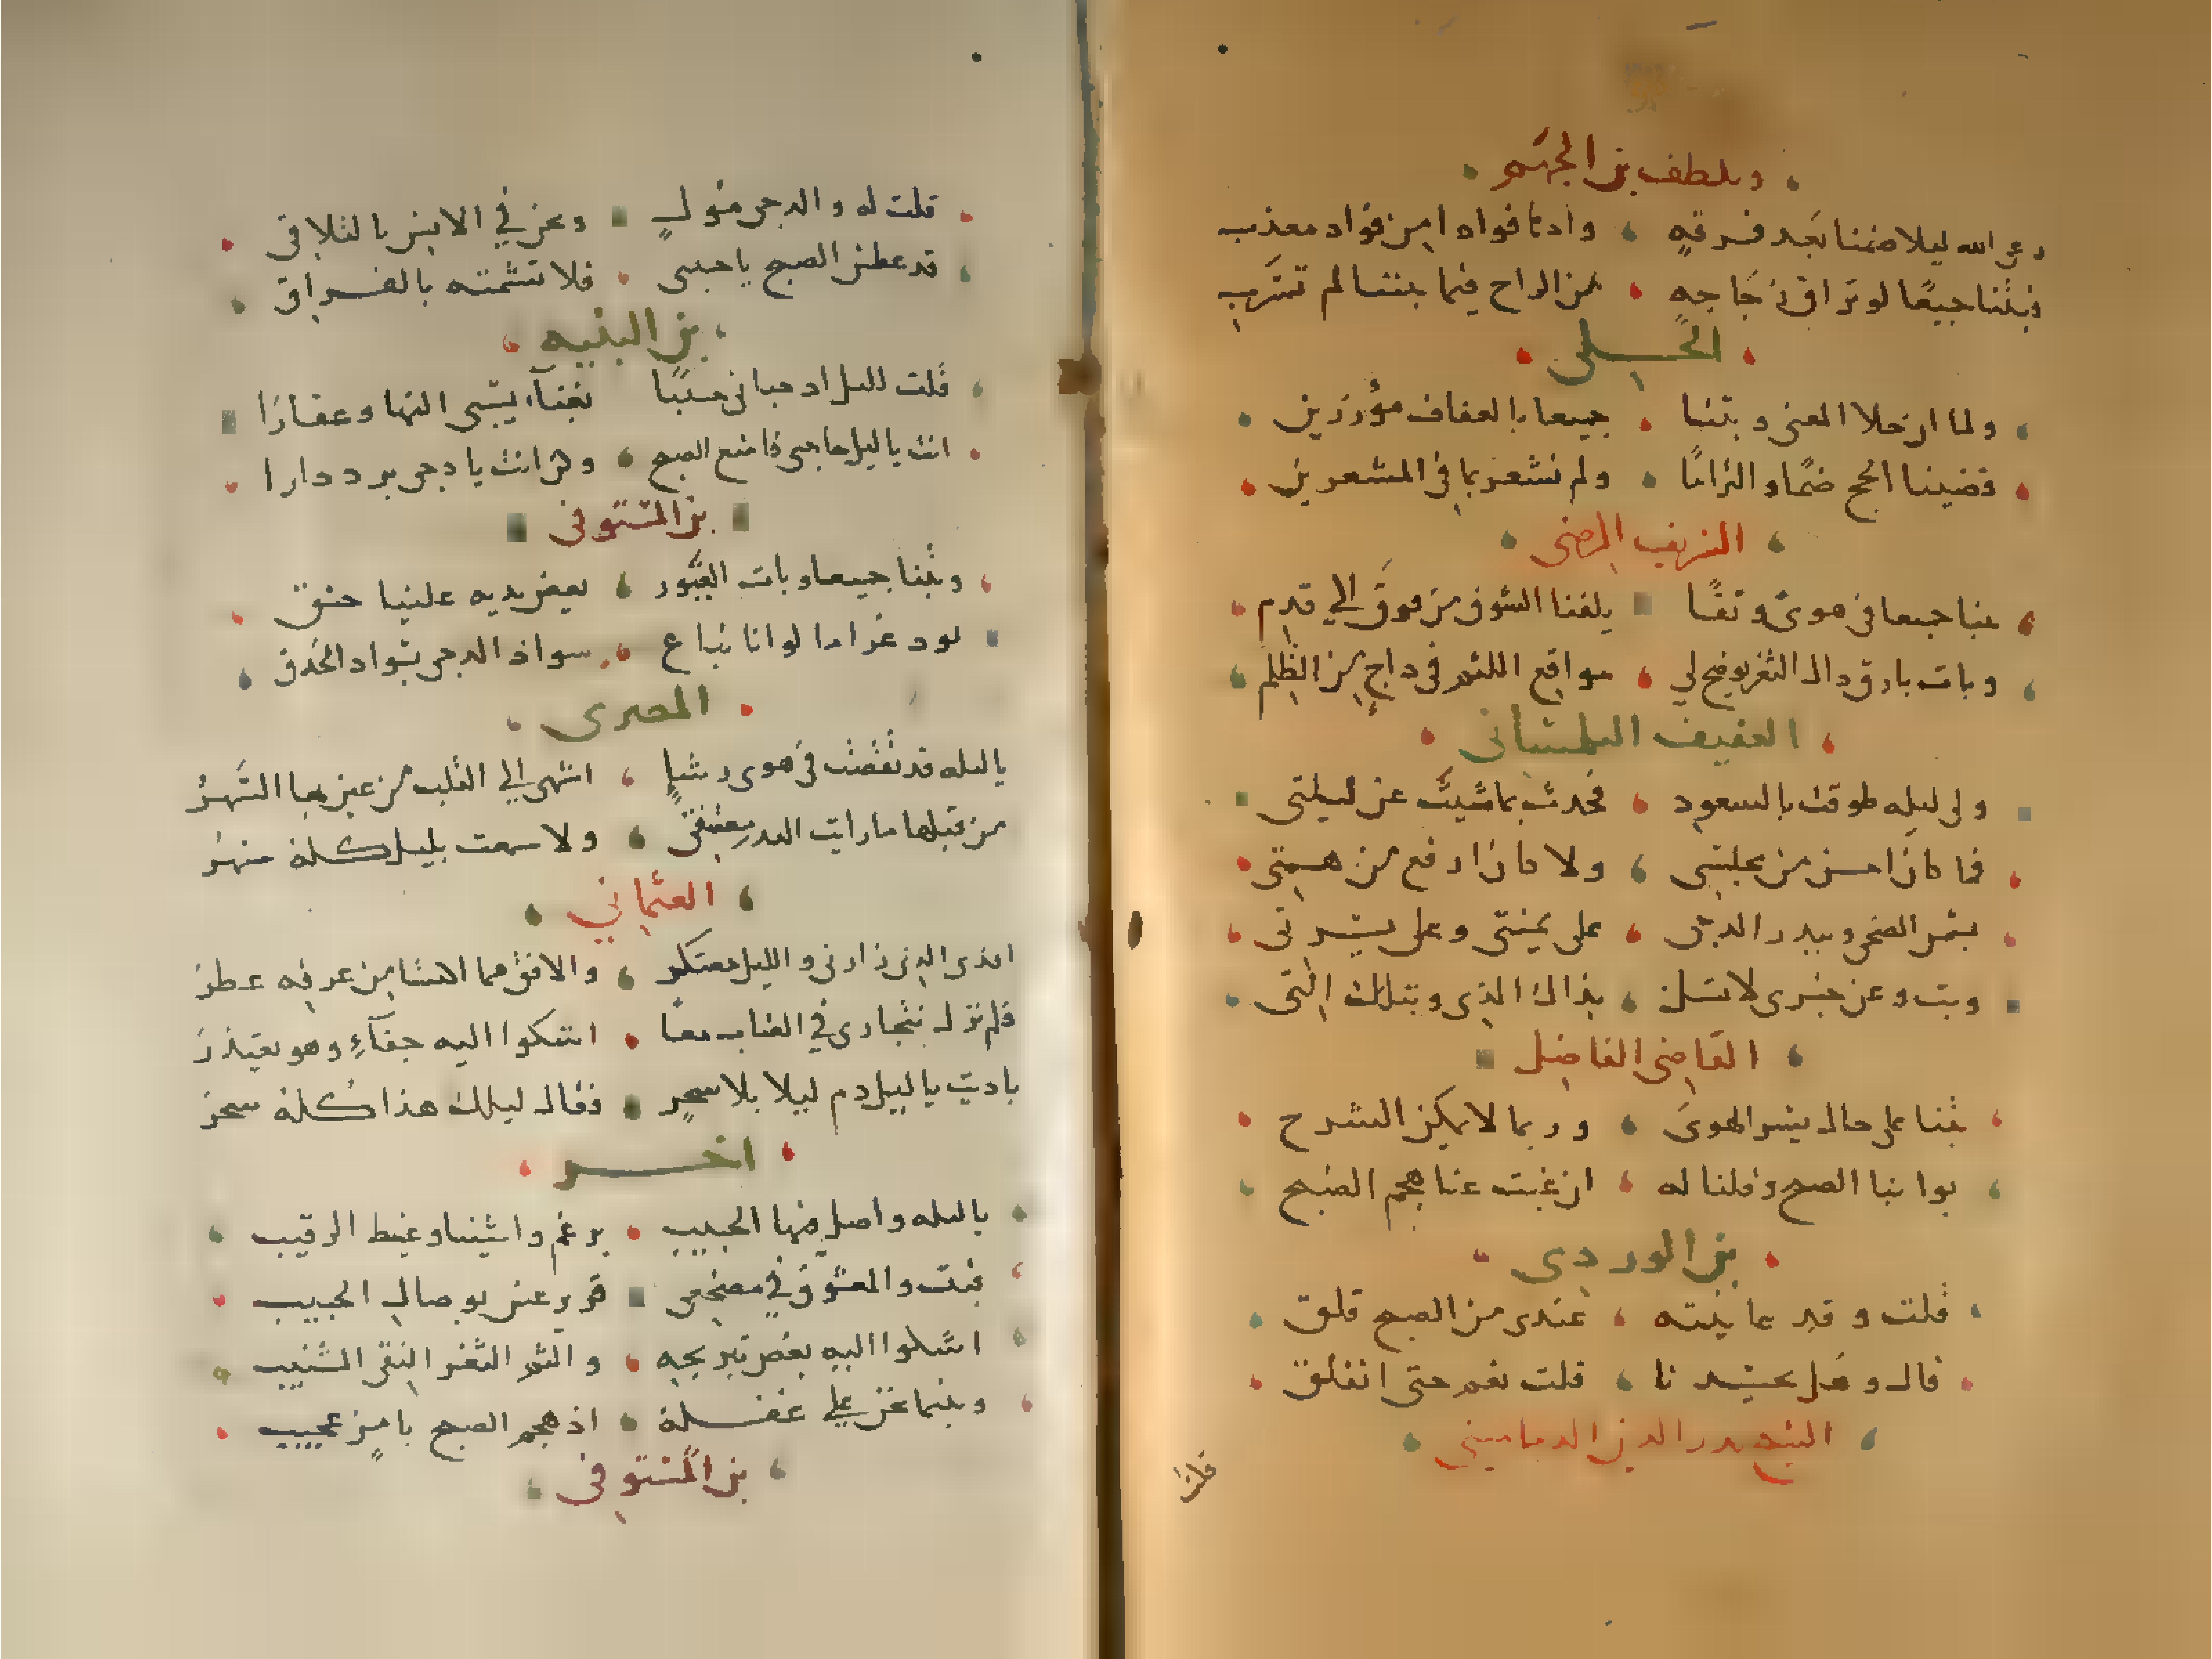 وتلطف بن الجهم
رعى الله ليلا ضمنا بعد فرقه وادنا فوادا من فواد معذب
فبتنا جميعًا لو تراق زجاجه من الراح فيما بيننا لم تسرب
الحلى
ولما ان خلا المغنى وبتنا جميعا بالعفاف مؤزرين
قضينا الحج ضمًا والتزامًا ولم نشعر بما في المشعرين
الشريف الرضى
بتنا جميعا في هوى وتقًا يلفنا الشوق من فوق الي قدم
وبات بارق ذاك الثغر يوضح لي مواقع اللثم في داج من الظلم
العفيف التلمساني
ولى ليله طوقت بالسعود فحدث بما شيت عن ليلتى
فما كان احسن من مجلسى ولا كان ارفع من همتى
بشمس الضحى وببدر الدجى على يمنتى وعلى يسرتى
وبت وعن خبرى لا تسلن بذاك الذى وبتلك التى
القاضى الفاضل
بتنا على حال يسر الهوى وربما لا يمكن الشرح
بوابنا الصبح وقلنا له ان غبت عنا هجم الصبح
بن الوردى
قلت وقد عانيته عندى من الصبح قلق
قال وهل يحسدنا قلت نعم حتى انفلق
الشيخ بدر الدين الدمامينى
قلت
قلت له والدجى مول ونحن في الانس بالتلاقى
قد عطس الصبح يا حبيبى فلا تشمته بالفراق
بن النبيه
قلت لليل اذ حبانى حبيبًا بغنآء يسبى النها وعقارًا
انت يا ليل حاجبى فامنع الصبح وكن انت يا دجى برد دارا
بن المستوفى
وبتنا جميعا وبات الغيور يعض يديه علينا حنق
نود غراما لو انا نباع سواد الدجى بسواد الحدق
المصرى
يا ليله قد تقضت في هوى رشاٍ اشهى الي القلب من عين بها السهر
من قبلها ما رايت البدر معتنقى ولا سمعت بليل كله سهر
العثماني
افدى الذى زارنى والليل معتكر والافق مما اكتسا من عرفه عطر
فلم نزل نتجارى في العتاب معًا اشكوا اليه جفآءٍ وهو يعتذر
ناديت يا ليل دم ليلا بلا سحرٍ فقال ليلك هذا كله سحر
اخر
يا ليله واصل فيها الحبيب برغم واشينا وغيظ الرقيب
فبت والمعشوق في مضجعى قرير عين بوصال الحبيب
اشكوا اليه بعض تبريحه والثم الثغر النقى الشنيب
وبينما نحن علي غفلة اذ هجم الصبح بامر عجيب
بن المستوفى